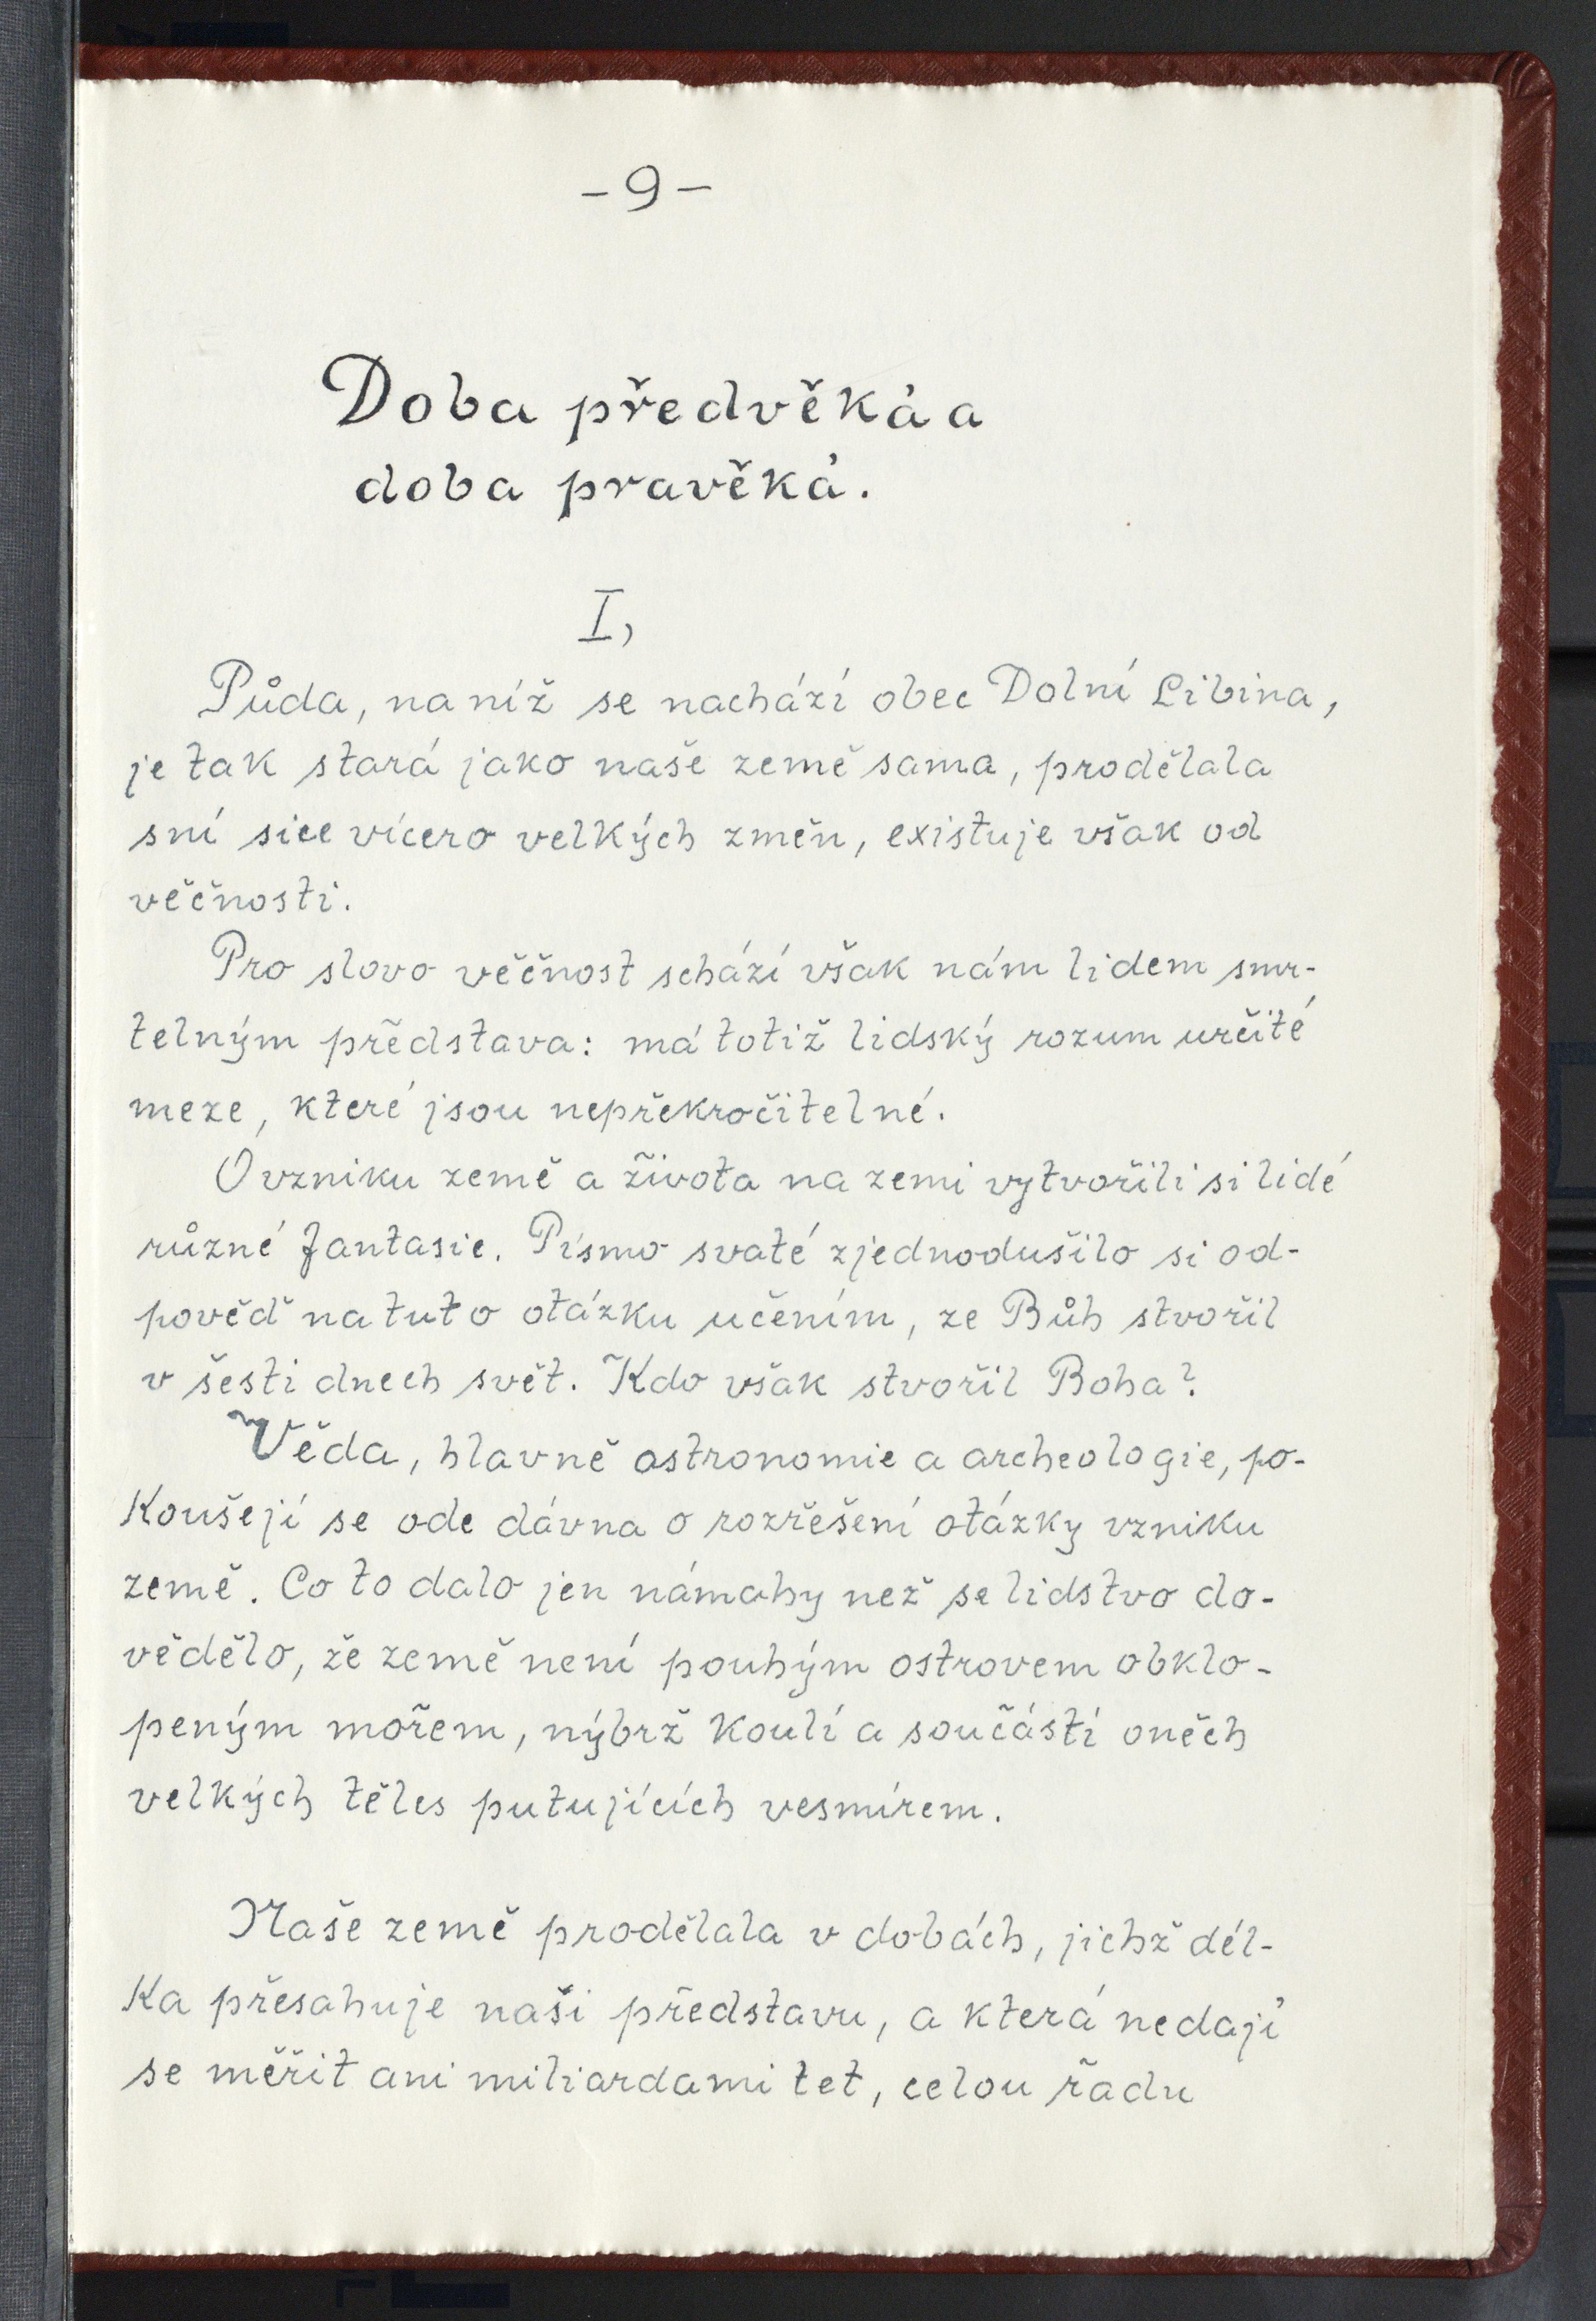 -9-
Doba předvěká a
doba pravěká.
I,
Půda, na níž se nachází obec Dolní Libina,
je tak stará jako naše země sama, prodělala
sní sice vícero velkých změn, existuje však od
věčnosti.
Pro slovo věčnost schází však nám lidem smr-
telným představa: má totiž lidský rozum určité
meze, které jsou nepřekročitelné.
O vzniku země a života na zemi vytvořili si lidé
různé fantasie. Písmo svaté zjednodušilo si od-
pověď na tuto otázku učením, ze Bůh stvořil
v šesti dnech svět. Kdo však stvořil Boha?
Věda, hlavně astronomie a archeologie, po-
koušejí se ode dávna o rozřešení otázky vzniku
země. Co to dalo jen námahy než se lidstvo do-
vědělo, že země není pouhým ostrovem obklo-
peným mořem, nýbrž koulí a součástí oněch
velkých těles putujících vesmírem.
Naše země prodělala v dobách, jichž dél-
ka přesahuje naši představu, a která nedají
se měřit ani miliardami let, celou řadu